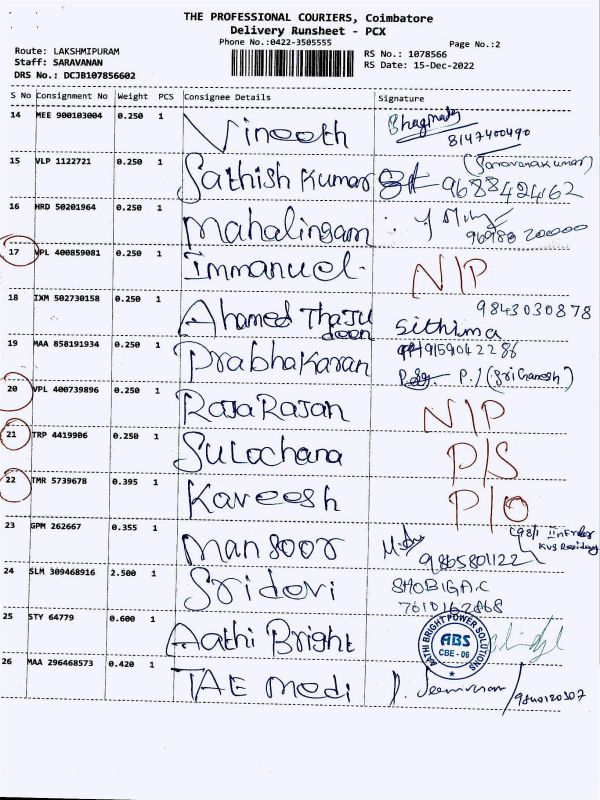 THE PROFESSIONAL COURIERS, Coimbatore
Delivery Runsheet - PCX
Phone No.:0422-3505555
Page No.:2
Route: LAKSHMIPURAM
RS No.: 1078566
Staff: SARAVANAN
RS Date: 15-Dec-2022
DRS No.: DCJB107856602
S No Consignment No Weight PCS Consignee Details Signature
14 MEE 900103004 0.250 1 Vineeth
8147400490
15 VLP 1122721 0.250 1 Sathish Kumar (Saravanakumar)
9688424162
16 HRD 50201964 0.250 1 Mahalingam
96988 200000
17 VPL 400859081 0.250 1 Immanuel. N/P
18 IXM 502730158 0.250 1 Ahamed Thaju deen 9843030878
Sithima
19 MAA 858191934 0.250 1 Prabhakaran 9159042286
P.J (Sri Ganesh)
20 VPL 400739896 0.250 1 RajaRajan N/P
21 TRP 4419906 0.250 1 Sulochana P/S
22 TMR 5739678 0.395 1 Kaveesh P/O
23 GPM 262667 0.355 1 Mansoor
9865801122
24 SLM 309468916 2.500 1 Sridevi SHOBIGA.C
7610162868
25 STY 64779 0.600 1 Aathi Bright
AATHI BRIGHT POWER SOLUTIONS
ABS
CBE - 06
26 MAA 296468573 0.420 1 TAE Medi
9840120307